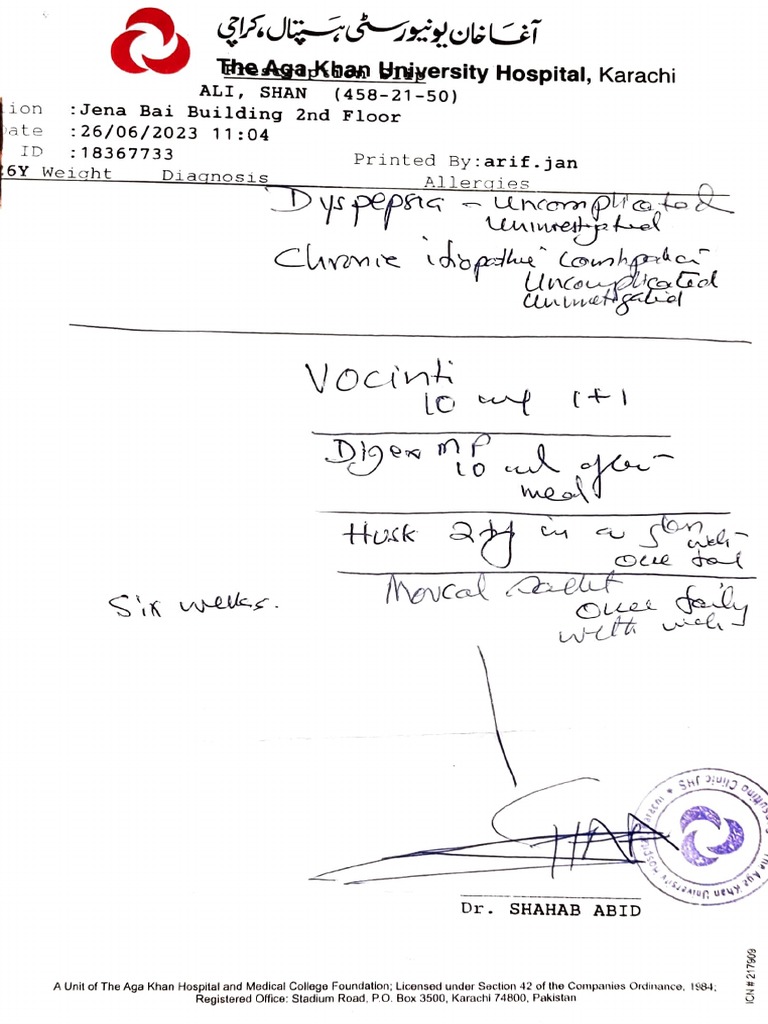 آغا خان یونیورسٹی ہسپتال، کراچی
The Aga Khan University Hospital, Karachi
Prescription Slip
ALI, SHAN (458-21-50)
ion :Jena Bai Building 2nd Floor
ate :26/06/2023 11:04
ID :18367733
Printed By:arif.jan
6Y Weight Diagnosis Allergies
Dyspepsia - Uncomplicated
Uninvestigated
Chronic idiopathic constipation
Uncomplicated
Uninvestigated
Vocinti
10 mg 1+1
Digex MP
10 ml after
meal
Husk 2 in a
once
Movcal sachet
once daily
with
Six weeks.
SHAH
Dr. SHAHAB ABID
Consulting Clinic JHS
The Aga Khan University Hospital
ICN # 217909
A Unit of The Aga Khan Hospital and Medical College Foundation; Licensed under Section 42 of the Companies Ordinance, 1984;
Registered Office: Stadium Road, P.O. Box 3500, Karachi 74800, Pakistan